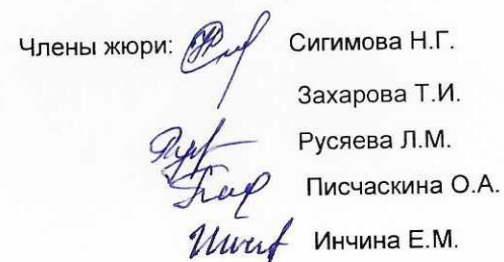 Члены жюри: Сигимова Н.Г.
Захарова Т.И.
Русяева Л.М.
Писчаскина О.А.
Инчина Е.М.